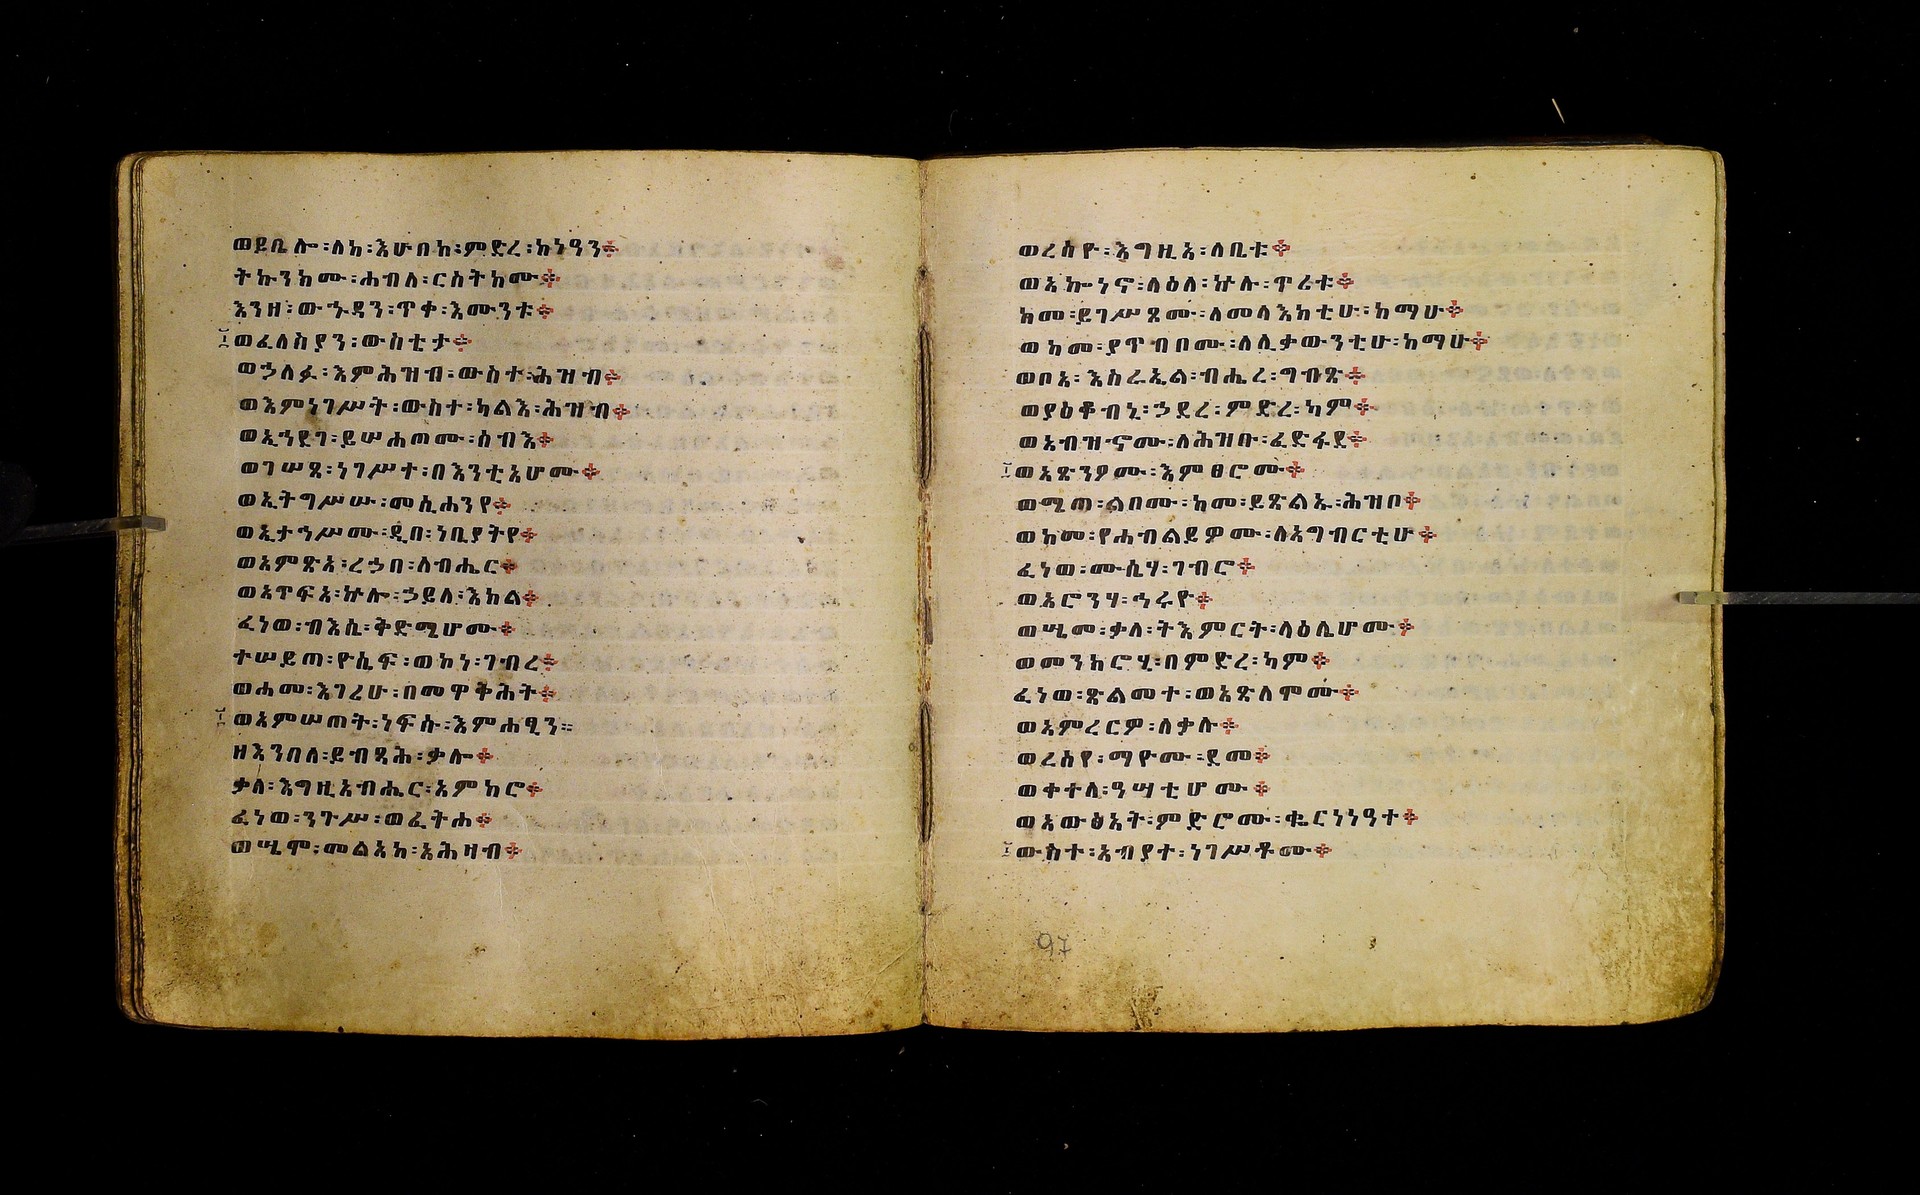 ወይቤሎ፡ለከ፡እሁበከ፡ምድረ፡ከነዓን፨
ትኩንክሙ፡ሐብለ፡ርስትክሙ፨
እንዘ፡ውኁዳን፡ጥቀ፡እሙንቱ፨
ወፈለስያን፡ውስቲታ፨
ወኃለፉ፡እምሕዝብ፡ውስተ፡ሕዝብ፨
ወእምነገሥት፡ውስተ፡ካልእ፡ሕዝብ፨
ወኢኀደገ፡ይሠሐጦሙ፡ሰብእ፨
ወገሠጸ፡ነገሥተ፡በእንቲአሆሙ፨
ወኢትግሥሡ፡መሲሐንየ፨
ወኢታኅሥሙ፡ዲበ፡ነቢያትየ፨
ወአምጽአ፡ረኃበ፡ለብሔር፨
ወአጥፍአ፡ኵሎ፡ኃይለ፡እክል፨
ፈነወ፡ብእሴ፡ቅድሜሆሙ፨
ተሠይጠ፡ዮሴፍ፡ወኮነ፡ገብረ፨
ወሐመ፡እገረሁ፡በመዋቅሕት፨
ወአምሠጠት፡ነፍሱ፡እምሐፂን።
ዘእንበለ፡ይብጻሕ፡ቃሉ፨
ቃለ፡እግዚአብሔር፡አምከሮ፨
ፈነወ፡ንጉሥ፡ወፈትሐ፨
ወሤሞ፡መልአከ፡አሕዛብ፨
ወረሰዮ፡እግዚአ፡ለቤቱ፨
ወአኰነኖ፡ላዕለ፡ኵሉ፡ጥሪቱ፨
ከመ፡ይገሥጾሙ፡ለመላእክቲሁ፡ከማሁ፨
ወከመ፡ያጥብቦሙ፡ለሊቃውንቲሁ፡ከማሁ፨
ወቦአ፡እስራኤል፡ብሔረ፡ግብጽ፨
ወያዕቆብኒ፡ኃደረ፡ምድረ፡ካም፨
ወአብዝኖሙ፡ለሕዝቡ፡ፈድፋደ፨
ወአጽንዖሙ፡እምፀሮሙ፨
ወሜጠ፡ልቦሙ፡ከመ፡ይጽልኡ፡ሕዝቦ፨
ወከመ፡የሐብልይዎሙ፡ለአግብርቲሁ፨
ፈነወ፡ሙሴሃ፡ገብሮ፨
ወአሮንሃ፡ኅሩዮ፨
ወሤመ፡ቃለ፡ትእምርት፡ላዕሌሆሙ፨
ወመንክሮሂ፡በምድረ፡ካም፨
ፈነወ፡ጽልመተ፡ወአጽለሞሙ፨
ወአምረርዎ፡ለቃሉ፨
ወረሰየ፡ማዮሙ፡ደመ፨
ወቀተለ፡ዓሣቲሆሙ፨
ወአውፅአት፡ምድሮሙ፡ቈርነነዓተ፨
ውስተ፡አብያተ፡ነገሥቶሙ፨
97